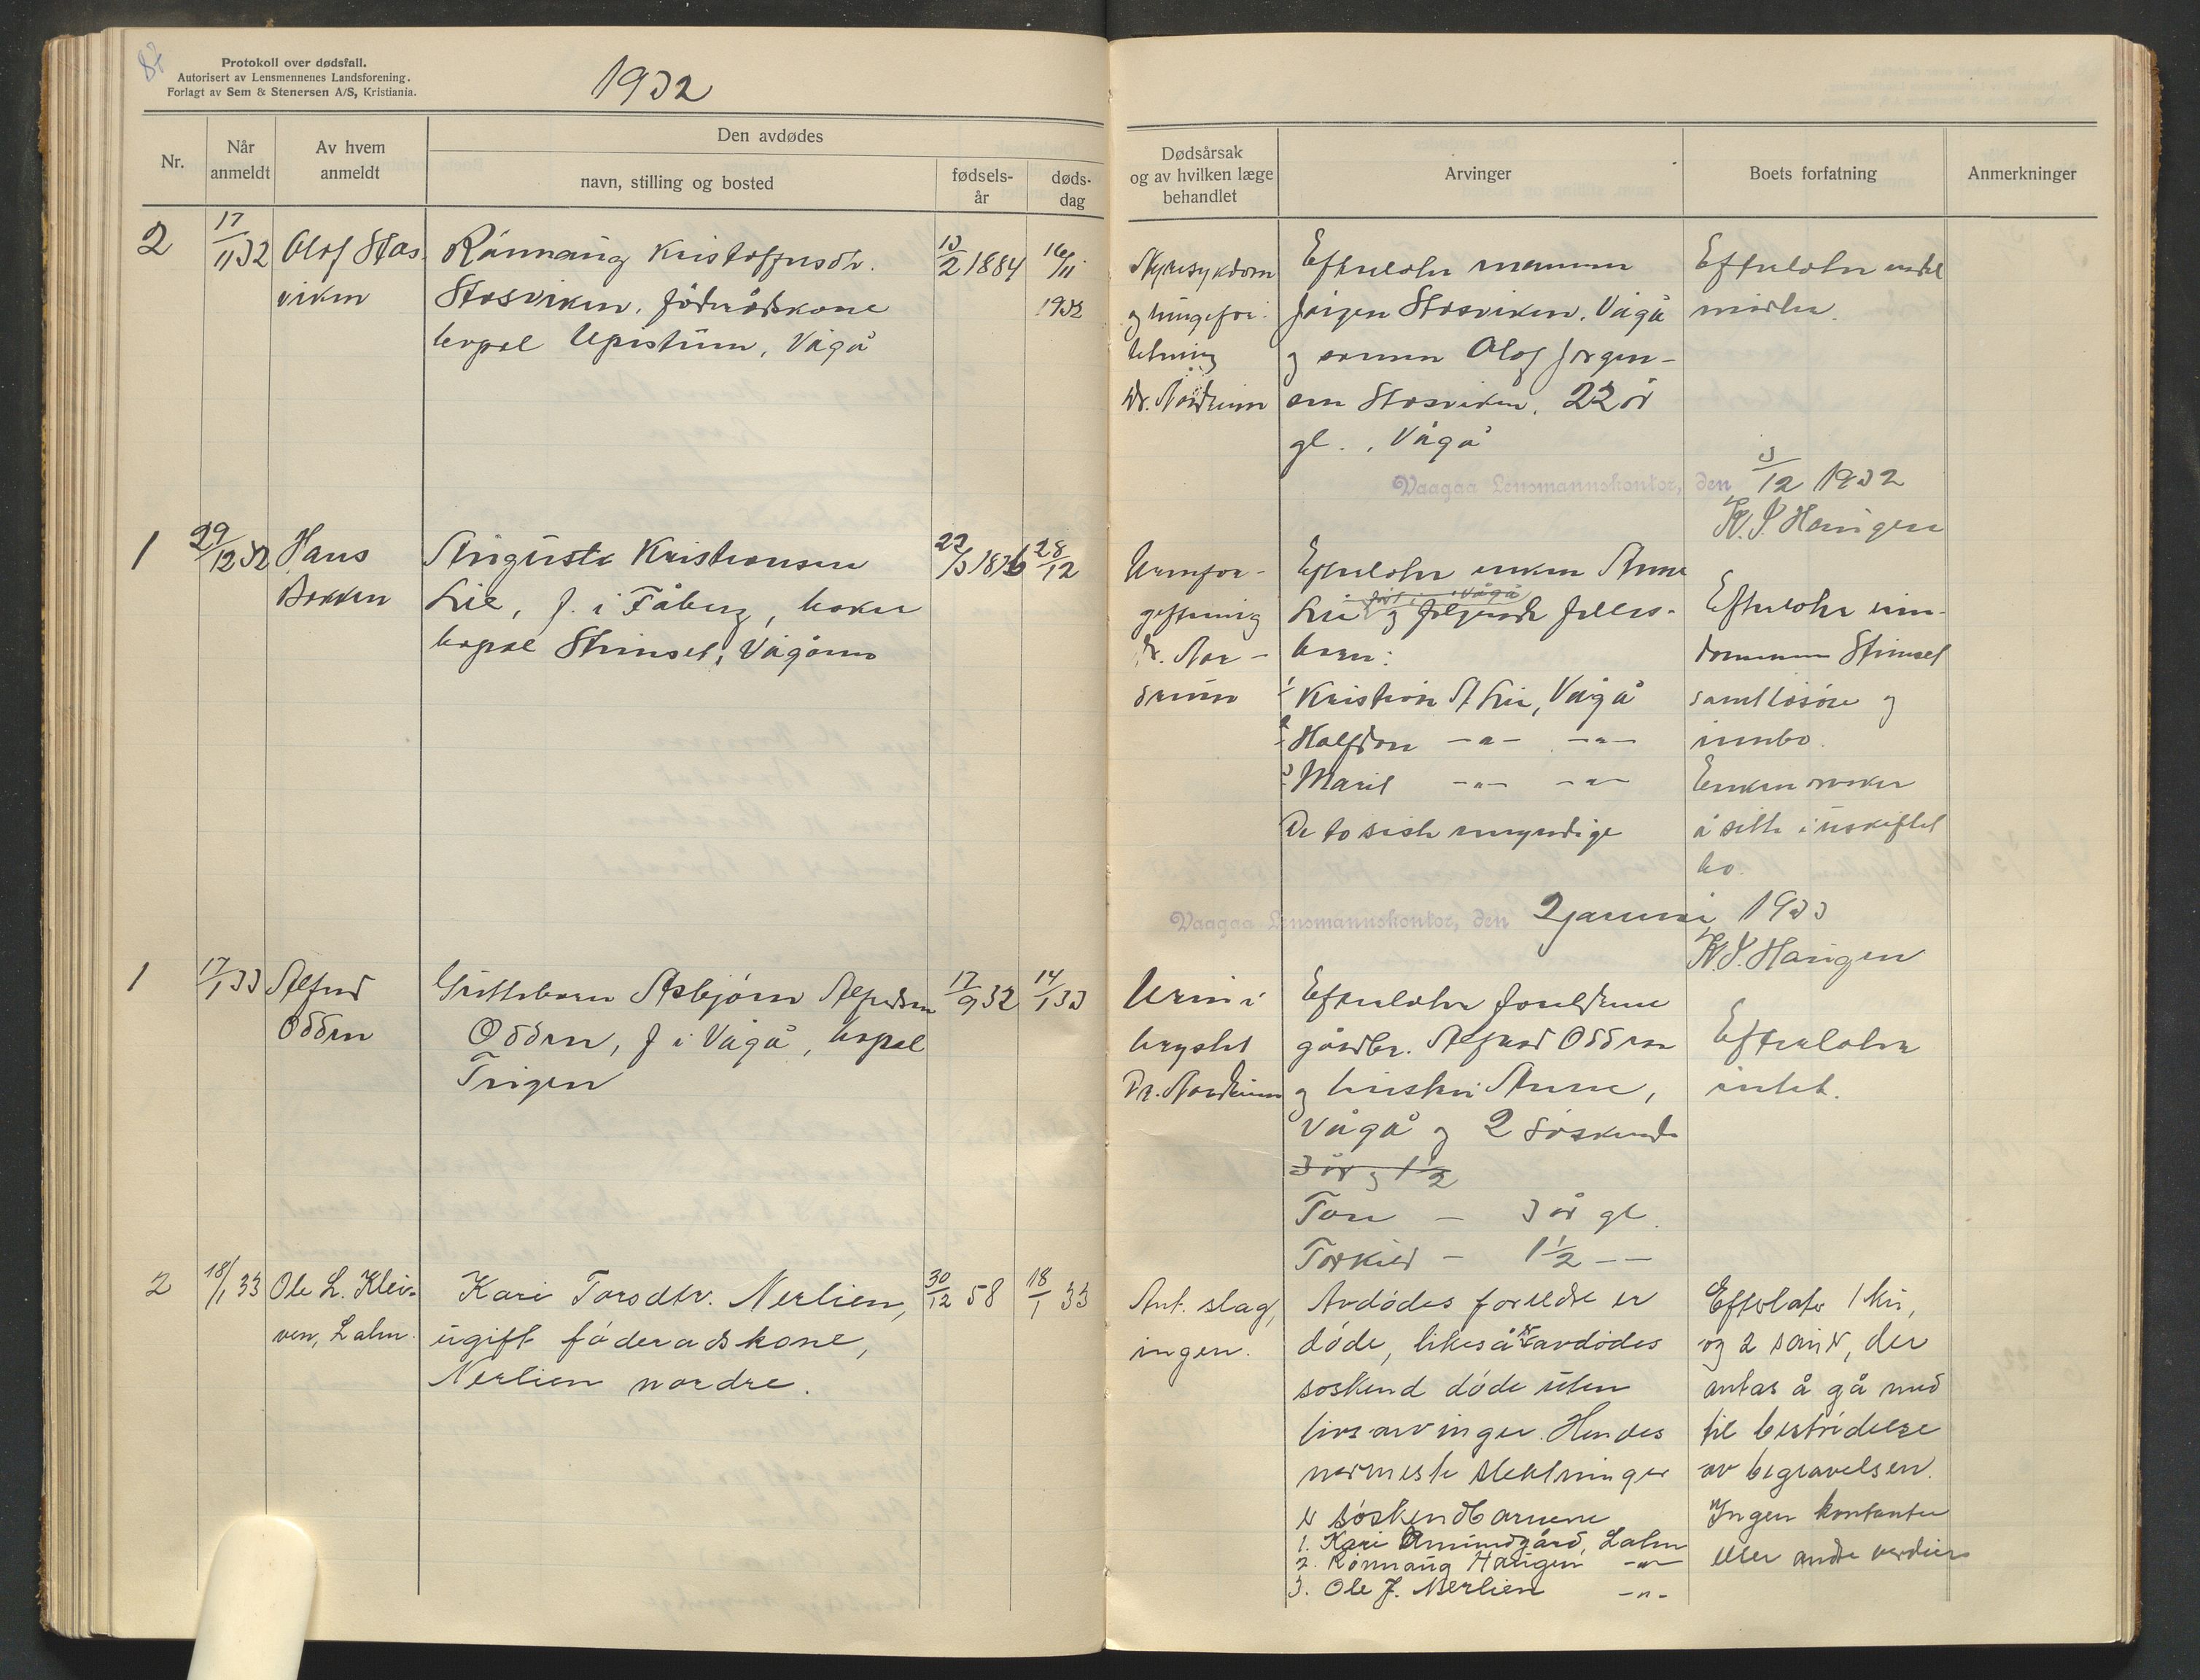 82
Protokoll over dødsfall.
Autorisert av Lensmennenes Landsforening.
Forlagt av Sem & Stenersen A/S, Kristiania.
1932
Nr.
Når anmeldt
Av hvem anmeldt
Den avdødes
navn, stilling og bosted
fødsels-år
døds-dag
Dødsårsak
og av hvilken læge
behandlet
Arvinger
Boets forfatning
Anmerkninger
2
17/11 32
Olaf Stos-
viken
Rønnaug Kristoffersdtr.
Stosviken, føderådskone
bopæl Upistuun, Vågå
13/2 1884
16/11
1932
Nyresykdom
og lungefor-
tetning
Dr. Nordrum
Efterlater mannen
Jørgen Stosviken, Vågå
og sønnen Olaf Jørgen-
sen Stosviken, 22 år
gl., Vågå
Efterlater endel
midler.
Vaagaa Lensmannskontor, den 3/12 1932
K. J. Haugen
1
29/12 32
Hans
Bakken
August Kristiansen
Lie, f. i Fåberg, baker
bopæl Skimsel, Vågåmo
22/3 1876
28/12
Urinfor-
giftning
Dr. Nor-
drum
Efterlater enken Anne
Lie født i Vågå og følgende felles-
barn:
1 Kristian A Lie, Vågå
2 Halfdan -"- -"-
3 Marit -"- -"-
De to siste umyndige
Efterlater ein-
dommen Skimsel
samt løsøre og
innbo.
Enken ønsker
å sitte i uskiftet
bo.
Vaagaa Lensmannskontor, den 2 januar 1933
K. J. Haugen
1
17/1 33
Alfred
Odden
Guttebarn Asbjørn Alfredsen
Odden, f i Vågå, bopæl
Trigen
17/9 32
14/1 33
Urin i
brystet
Dr. Nordrum
Efterlater foreldrene
gårdbr. Alfred Odden
og hustru Anne,
Vågå og 2 søskende
3 år og 1½
Tore - 3 år gl.
Torkild - 1½ -
Efterlater
intet.
2
18/1 33
Ole L. Klei-
ven, Lalm.
Kari Torsdtr. Nerlien,
ugift føderadskone,
Nerlien nordre.
30/12 58
18/1 33
Ant. slag,
ingen.
Avdødes foreldre er
døde, likeså er avdødes
søskend døde uten
livsarvinger. Hendes
nærmeste slektninger
er søskendbarnene
1. Kari Amundgård, Lalm
2. Rønnaug Haugen -"-
3. Ole J. Nerlien -"-
Efterlater 1 ku,
og 2 sauer, der
antas å gå med
til bestridelse
av begravelsen.
Ingen kontanter
eller andre verdier